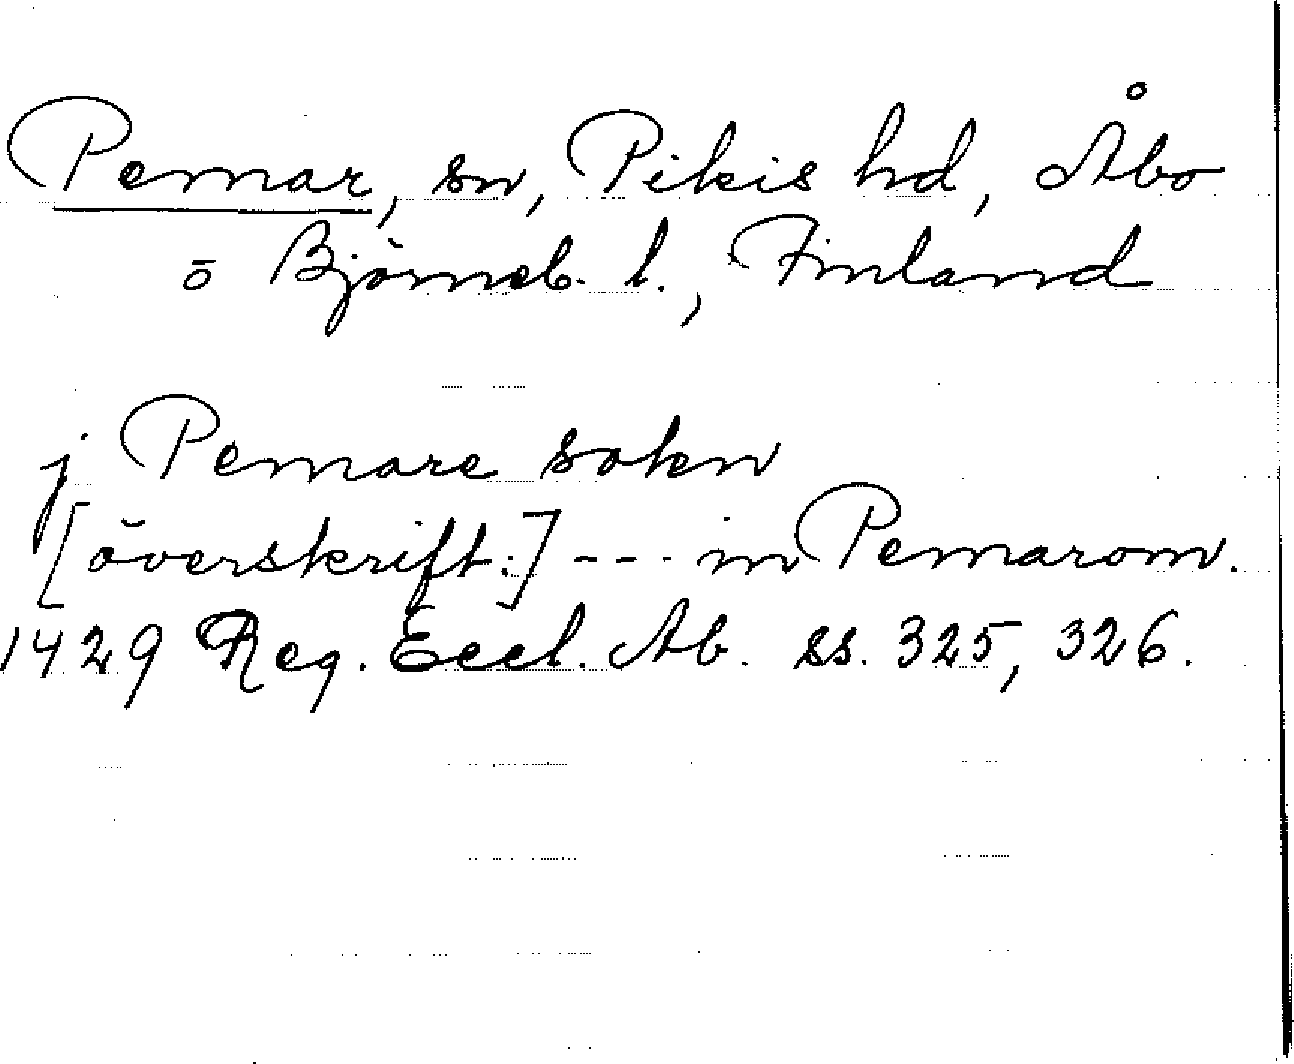 Pemar, sn, Pikis hd, Åbo
o Björneb. l., Finland
j Pemare sokn
[överskrift:] --- in Pemarom.
1429 Reg. Eccl. Ab. ss. 325, 326.